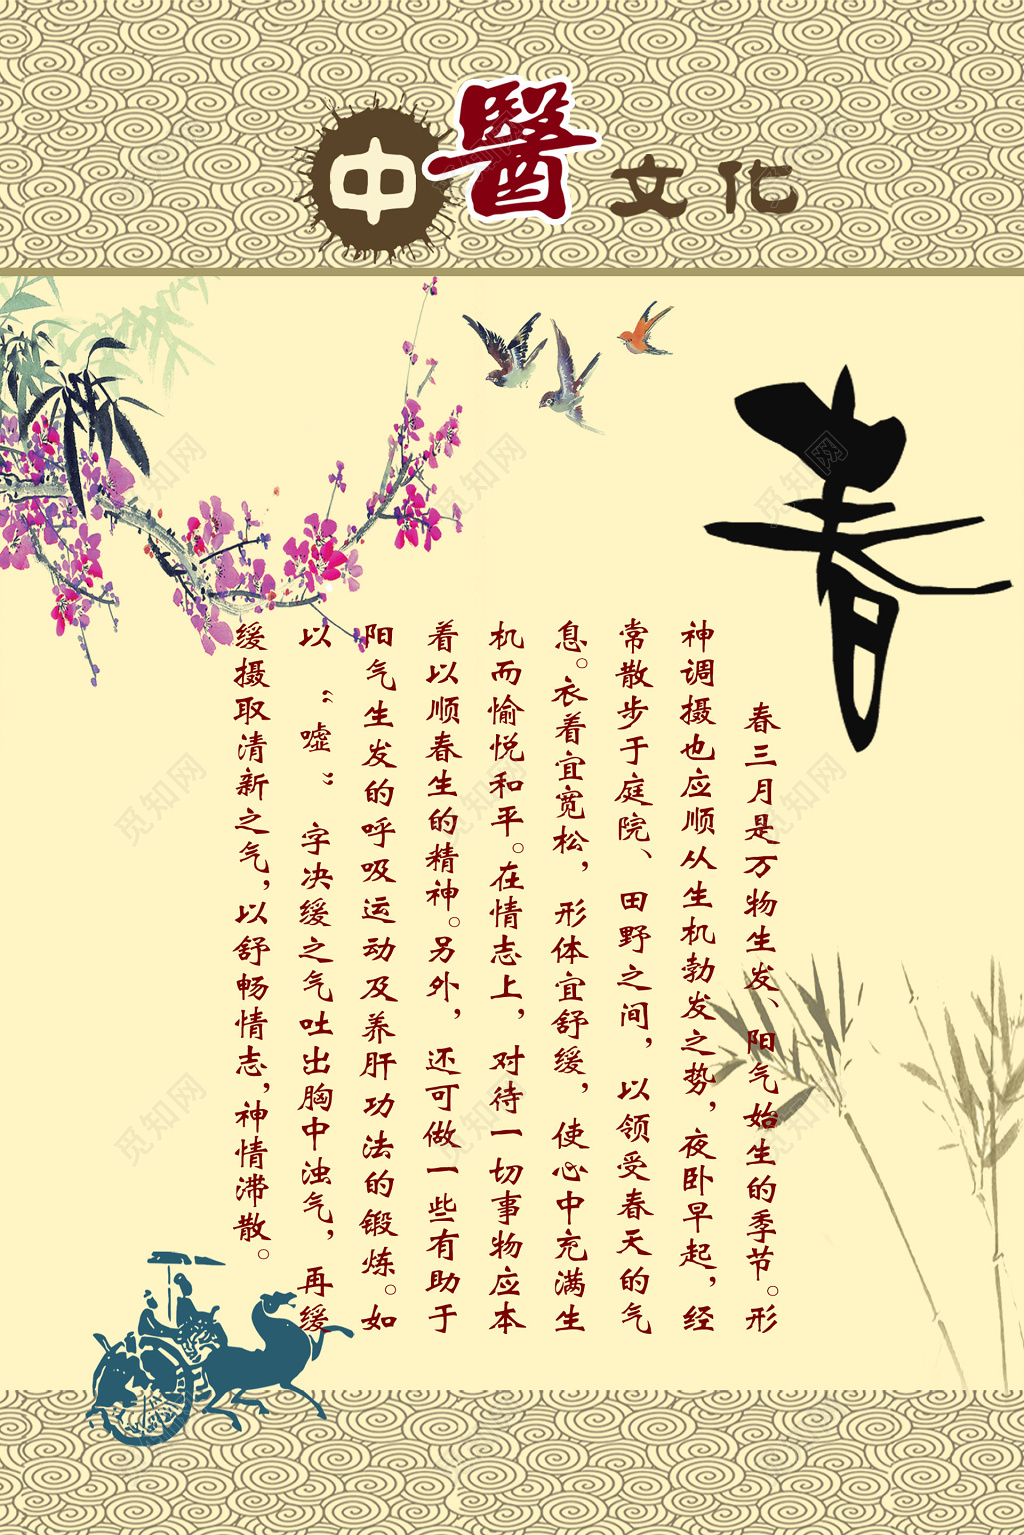 中醫文化
春
春三月是万物生发、阳气始生的季节。形
神调摄也应顺从生机勃发之势，夜卧早起，经
常散步于庭院、田野之间，以领受春天的气
息。衣着宜宽松，形体宜舒缓，使心中充满生
机而愉悦和平。在情志上，对待一切事物应本
着以顺春生的精神。另外，还可做一些有助于
阳气生发的呼吸运动及养肝功法的锻炼。如
以“嘘”字决缓之气吐出胸中浊气，再缓
缓摄取清新之气，以舒畅情志，神情滞散。
觅知网